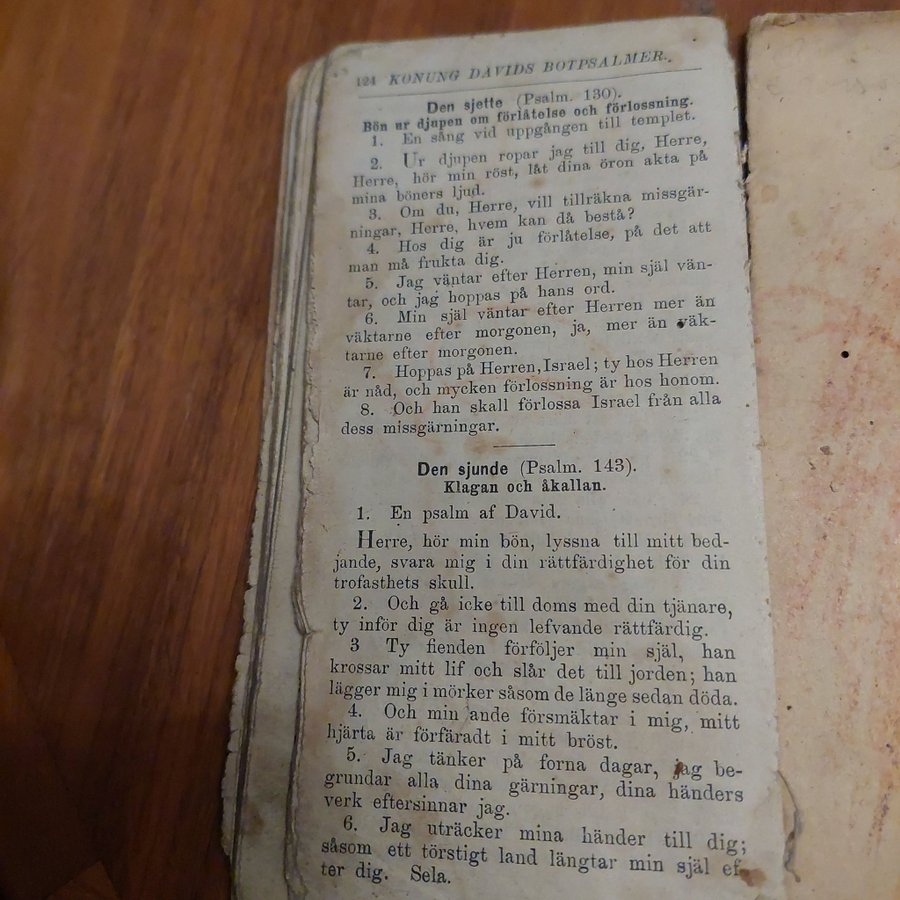 124 KONUNG DAVIDS BOTPSALMER.
Den sjette (Psalm. 130).
Bön ur djupen om förlåtelse och förlossning.
1. En sång vid uppgången till templet.
2. Ur djupen ropar jag till dig, Herre,
Herre, hör min röst, låt dina öron akta på
mina böners ljud.
3. Om du, Herre, vill tillräkna missgär-
ningar, Herre, hvem kan då bestå?
4. Hos dig är ju förlåtelse, på det att
man må frukta dig.
5. Jag väntar efter Herren, min själ vän-
tar, och jag hoppas på hans ord.
6. Min själ väntar efter Herren mer än
väktarne efter morgonen, ja, mer än väk-
tarne efter morgonen.
7. Hoppas på Herren, Israel; ty hos Herren
är nåd, och mycken förlossning är hos honom.
8. Och han skall förlossa Israel från alla
dess missgärningar.
Den sjunde (Psalm. 143).
Klagan och åkallan.
1. En psalm af David.
Herre, hör min bön, lyssna till mitt bed-
jande, svara mig i din rättfärdighet för din
trofasthets skull.
2. Och gå icke till doms med din tjänare,
ty inför dig är ingen lefvande rättfärdig.
3 Ty fienden förföljer min själ, han
krossar mitt lif och slår det till jorden; han
lägger mig i mörker såsom de länge sedan döda.
4. Och min ande försmäktar i mig, mitt
hjärta är förfäradt i mitt bröst.
5. Jag tänker på forna dagar, jag be-
grundar alla dina gärningar, dina händers
verk eftersinnar jag.
6. Jag uträcker mina händer till dig;
såsom ett törstigt land längtar min själ ef-
ter dig. Sela.